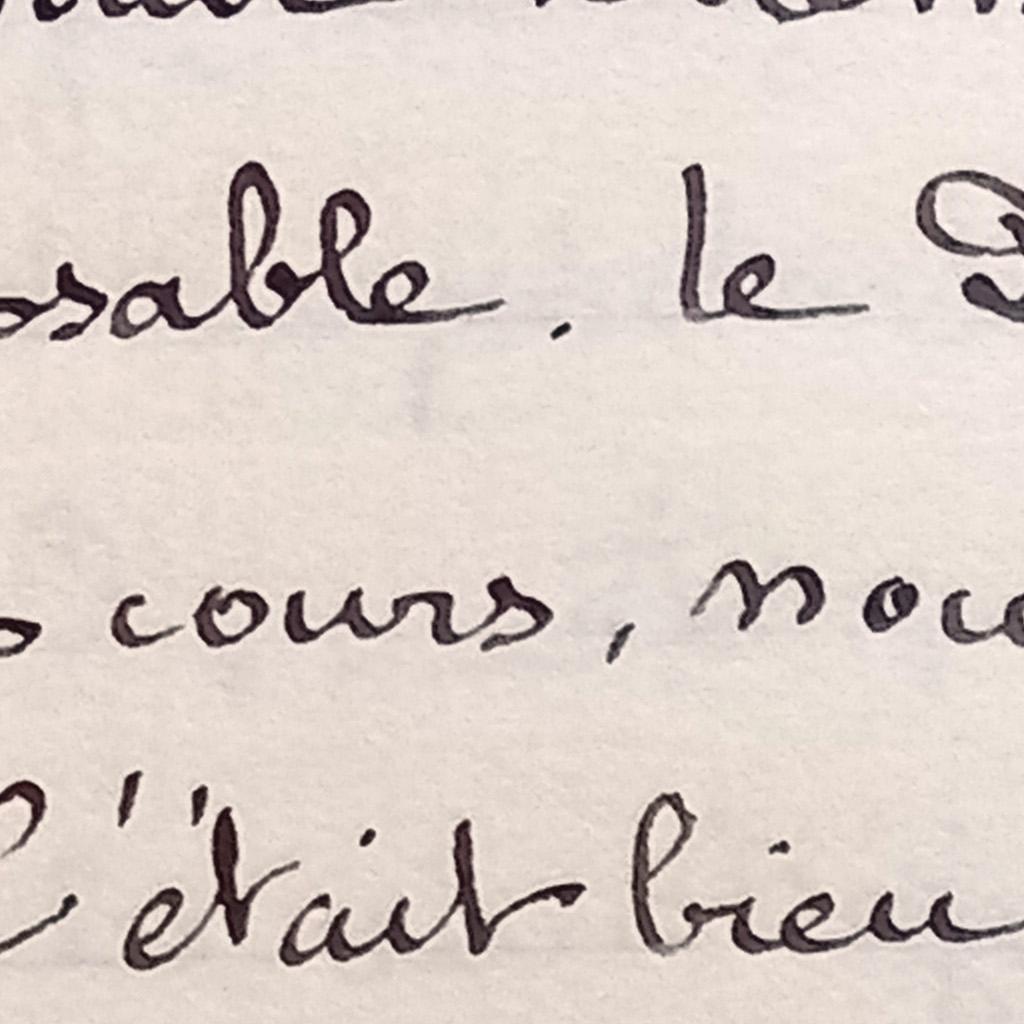 osable. le
s cours, nou
C'était bien